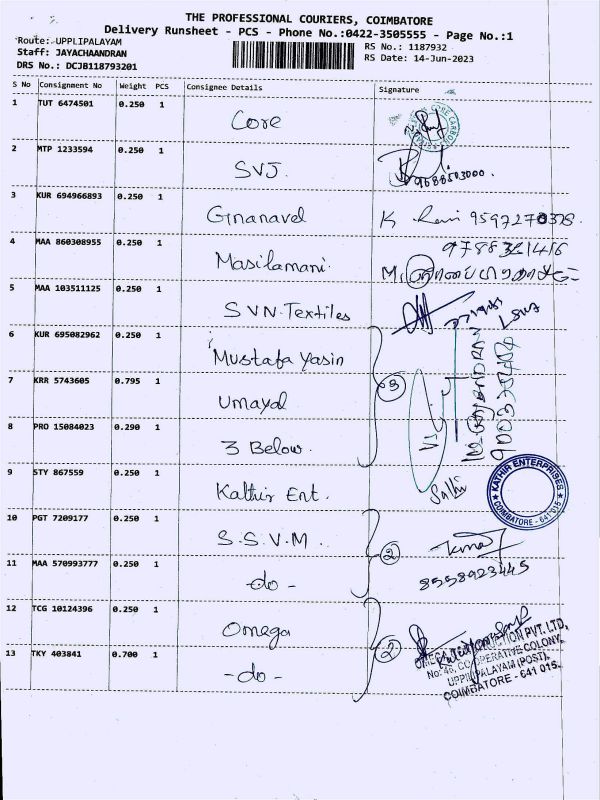 THE PROFESSIONAL COURIERS, COIMBATORE
Delivery Runsheet - PCS - Phone No.:0422-3505555 - Page No.:1
Route: UPPLIPALAYAM
RS No.: 1187932
Staff: JAYACHAANDRAN
RS Date: 14-Jun-2023
DRS No.: DCJB118793201
S No Consignment No Weight PCS Consignee Details Signature
1 TUT 6474501 0.250 1 Core
2 MTP 1233594 0.250 1 SVJ. 9688503000.
3 KUR 694966893 0.250 1 Gnanavel K
4 MAA 860308955 0.250 1 Masilamani.
5 MAA 103511125 0.250 1 SVN.Textiles
6 KUR 695082962 0.250 1 Mustafa Yasin
7 KRR 5743605 0.795 1 Umayal 3
8 PRO 15084023 0.290 1 3 Below.
9 STY 867559 0.250 1 Kathir Ent. KATHIR ENTERPRISES COIMBATORE - 641 015.
10 PGT 7209177 0.250 1 S.S.V.M.
2
11 MAA 570993777 0.250 1 -do- 8558923445
12 TCG 10124396 0.250 1 Omega
2
13 TKY 403841 0.700 1 -do-
No: 46, CO-OPERATIVE COLONY,
UPPILIPALAYAM (POST),
COIMBATORE - 641 015.